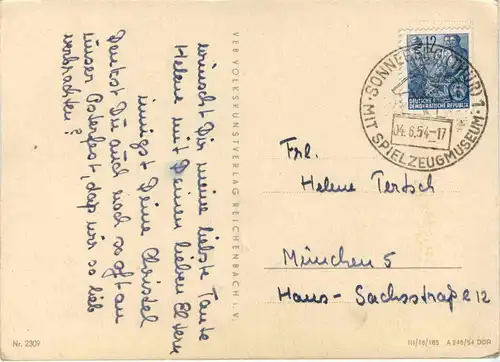 wünscht Dir meine liebste Tante
Helene mit Deinen lieben Eltern
innigst Deine Christel
Denkst Du auch noch so oft an
unser Osterfest, das wir so lieb
verbrachten?
VEB VOLKSKUNSTVERLAG REICHENBACH i. V.
12
DEUTSCHE
DEMOKRATISCHE REPUBLIK
SONNEBERG (THÜR) 1
04.6.54-17
MIT SPIELZEUGMUSEUM
Frl.
Helene Tertsch
München 5
Hans-Sachsstraße 12
Nr. 2309
III/18/185 A 246/54 DDR